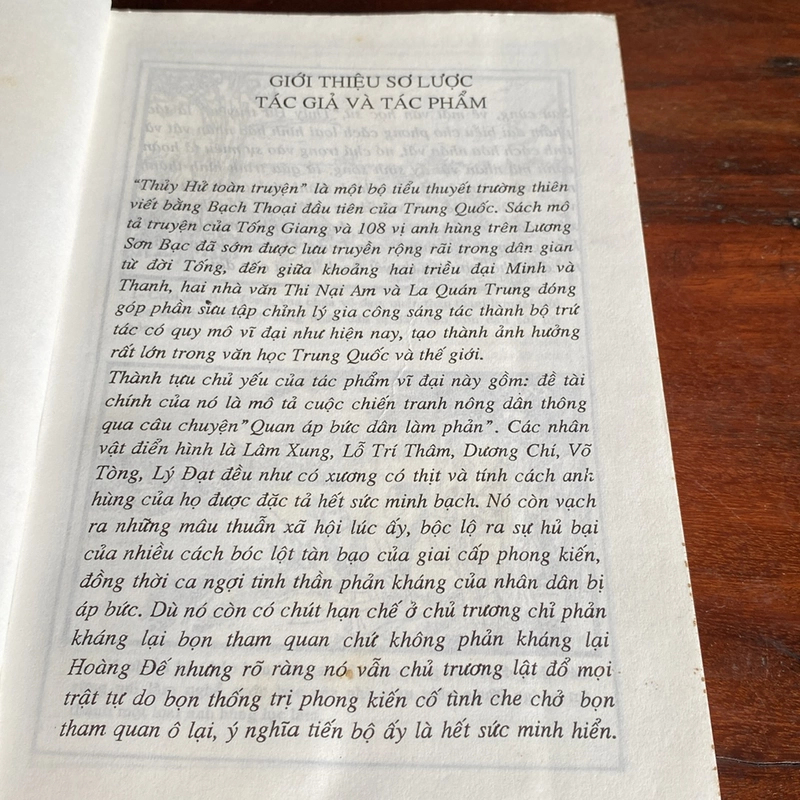 GIỚI THIỆU SƠ LƯỢC
TÁC GIẢ VÀ TÁC PHẨM
"Thủy Hử toàn truyện" là một bộ tiểu thuyết trường thiên
viết bằng Bạch Thoại đầu tiên của Trung Quốc. Sách mô
tả truyện của Tống Giang và 108 vị anh hùng trên Lương
Sơn Bạc đã sớm được lưu truyền rộng rãi trong dân gian
từ đời Tống, đến giữa khoảng hai triều đại Minh và
Thanh, hai nhà văn Thi Nại Am và La Quán Trung đóng
góp phần sưu tập chỉnh lý gia công sáng tác thành bộ trứ
tác có quy mô vĩ đại như hiện nay, tạo thành ảnh hưởng
rất lớn trong văn học Trung Quốc và thế giới.
Thành tựu chủ yếu của tác phẩm vĩ đại này gồm: đề tài
chính của nó là mô tả cuộc chiến tranh nông dân thông
qua câu chuyện"Quan áp bức dân làm phản". Các nhân
vật điển hình là Lâm Xung, Lỗ Trí Thâm, Dương Chí, Võ
Tòng, Lý Đạt đều như có xương có thịt và tính cách anh
hùng của họ được đặc tả hết sức minh bạch. Nó còn vạch
ra những mâu thuẫn xã hội lúc ấy, bộc lộ ra sự hủ bại
của nhiều cách bóc lột tàn bạo của giai cấp phong kiến,
đồng thời ca ngợi tinh thần phản kháng của nhân dân bị
áp bức. Dù nó còn có chút hạn chế ở chủ trương chỉ phản
kháng lại bọn tham quan chứ không phản kháng lại
Hoàng Đế nhưng rõ ràng nó vẫn chủ trương lật đổ mọi
trật tự do bọn thống trị phong kiến cố tình che chở bọn
tham quan ô lại, ý nghĩa tiến bộ ấy là hết sức minh hiển.